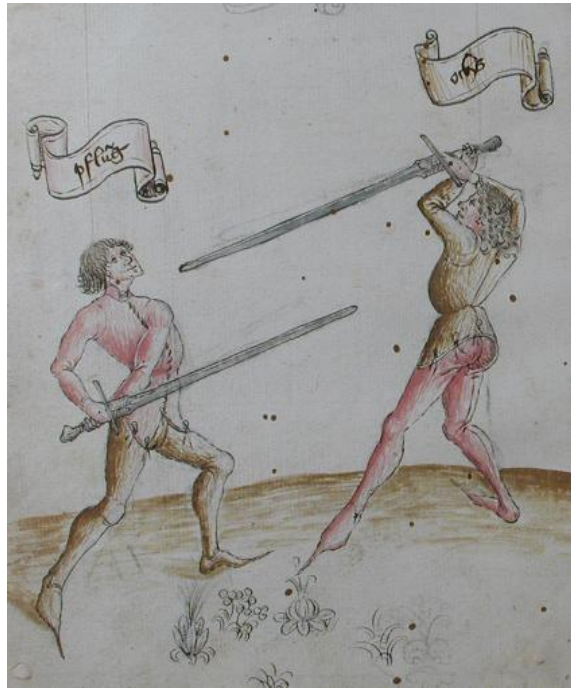 pflůg
ochs